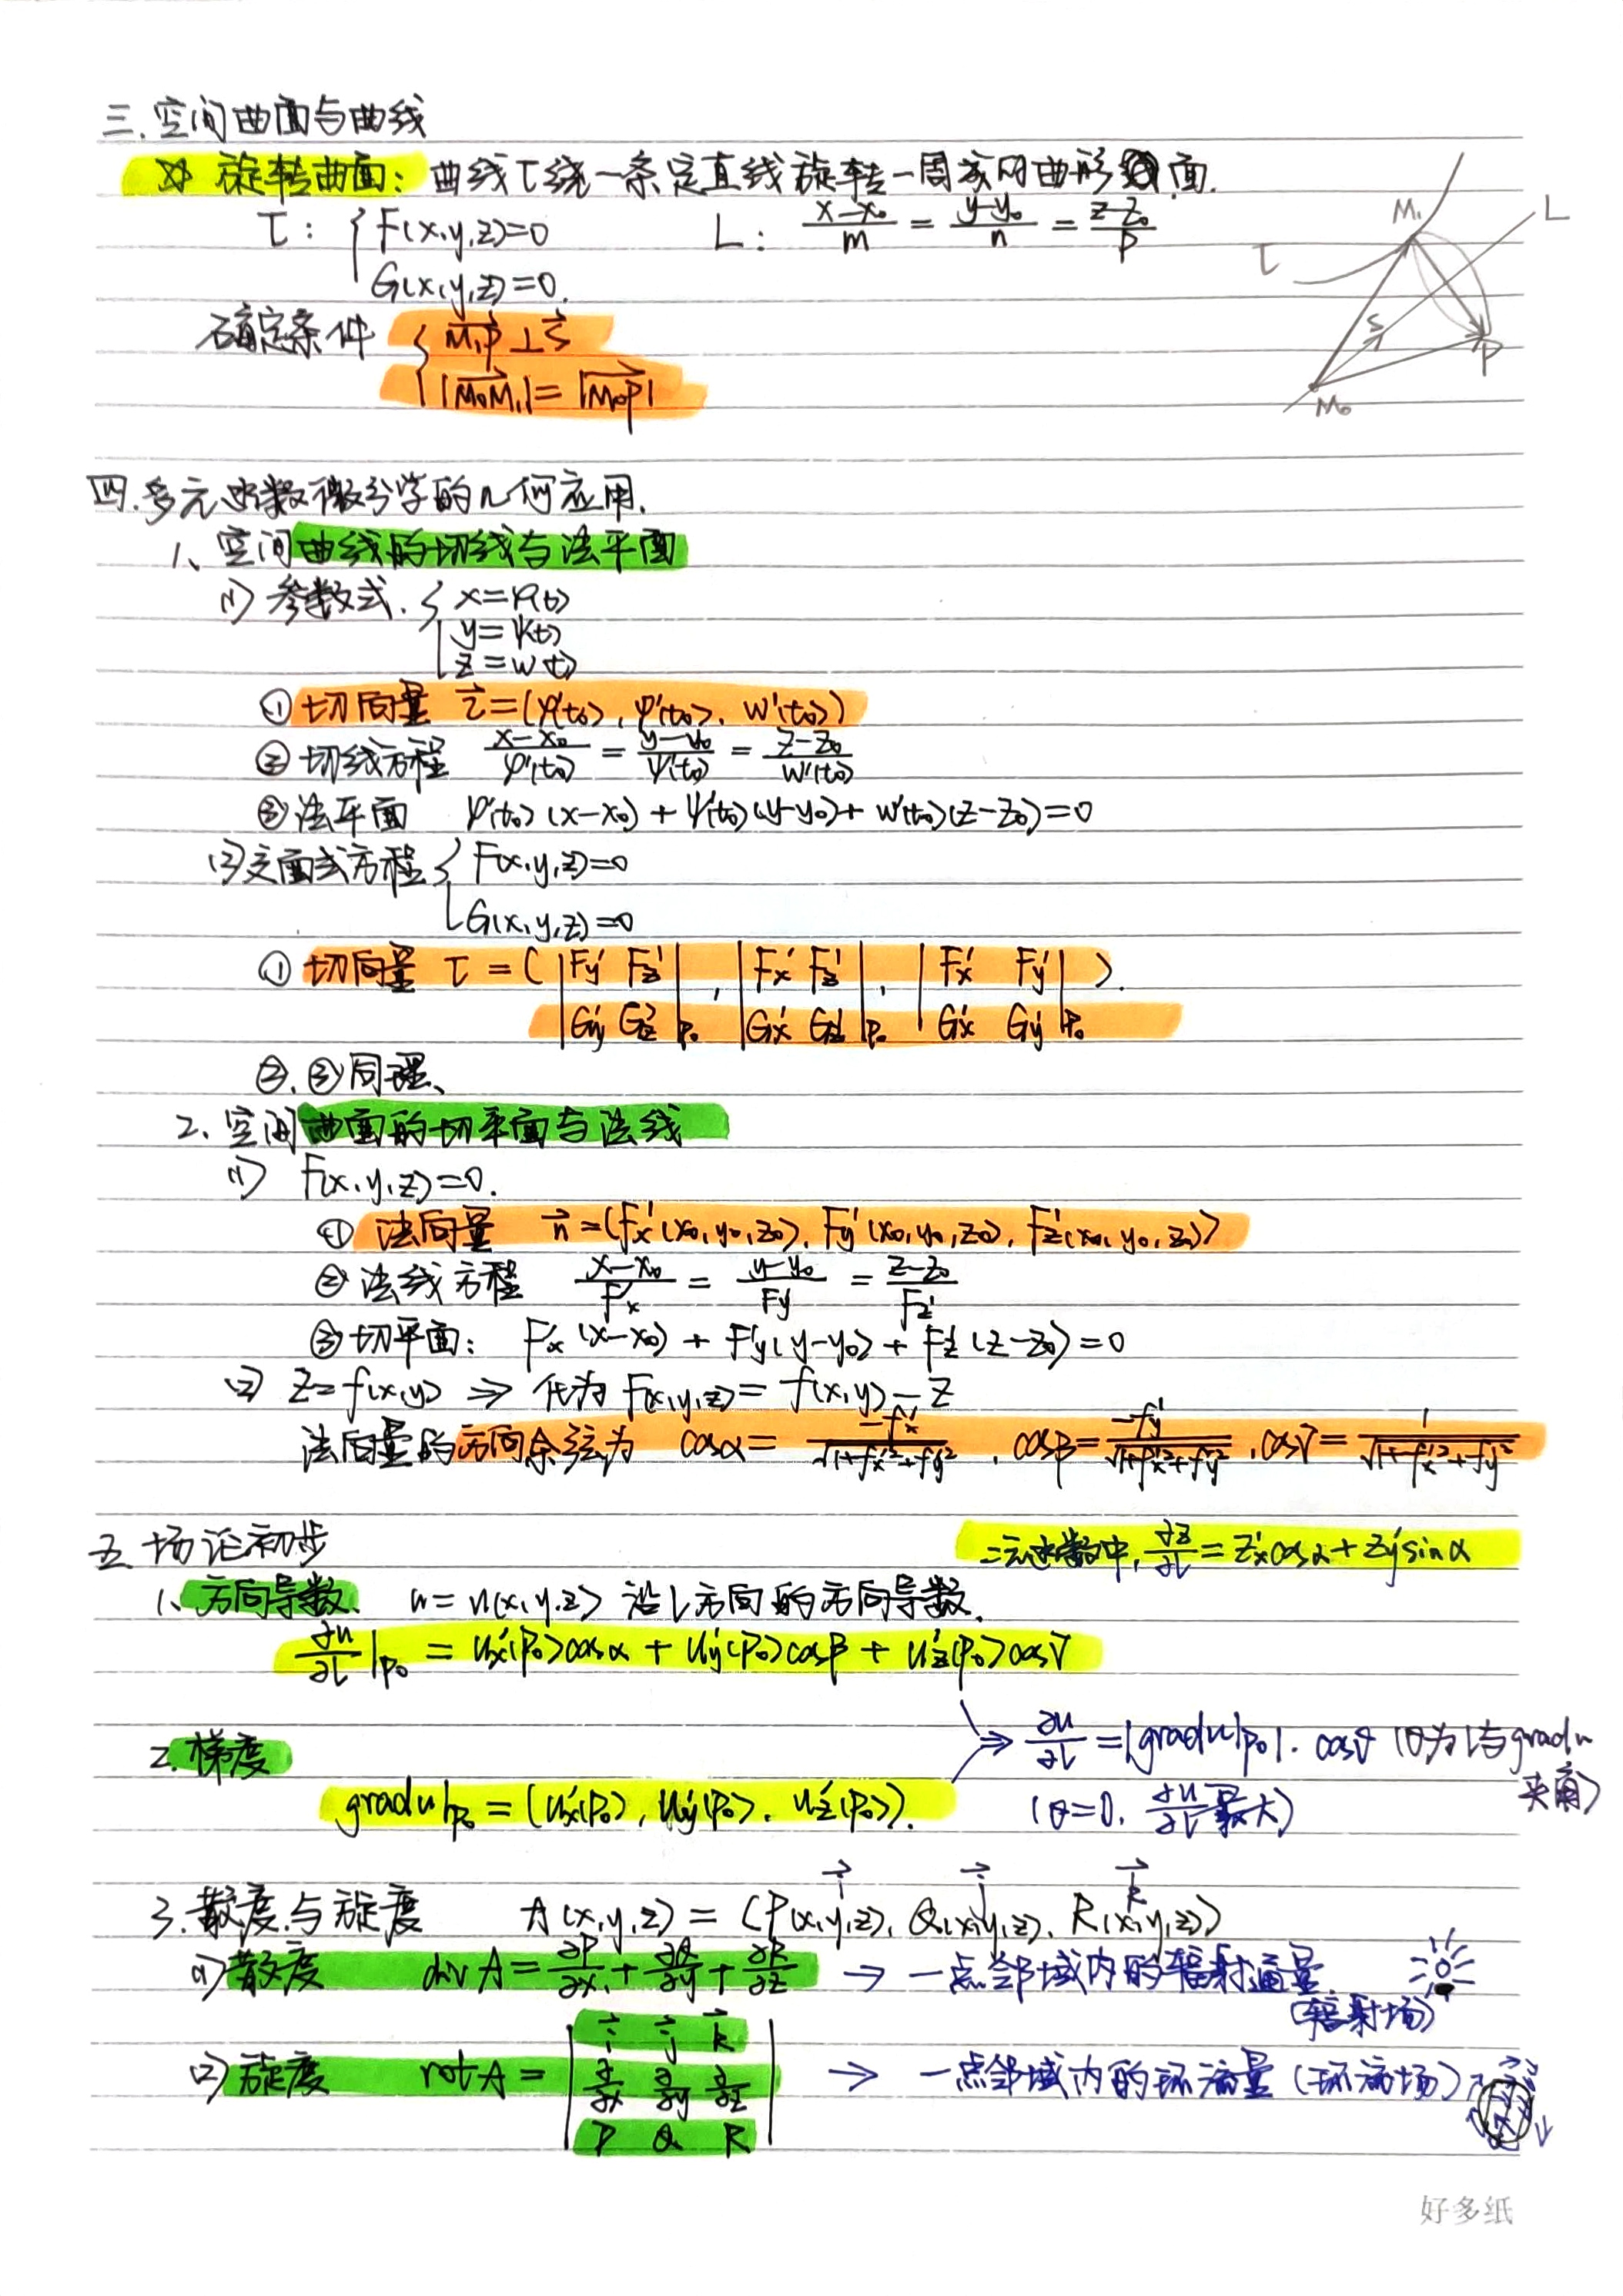 三.空间曲面与曲线
☆ 旋转曲面: 曲线τ绕一条定直线旋转一周成的曲形面.
τ: { F(x,y,z)=0    L: (x-x₀)/m = (y-y₀)/n = (z-z₀)/p
G(x,y,z)=0.
确定条件 { M₁P⃗ ⊥ s⃗
|M₀M₁⃗| = |M₀P⃗|
M₁ L τ s P M₀
四.多元函数微分学的几何应用.
1、空间曲线的切线与法平面
(1) 参数式. { x=φ(t)
y=ψ(t)
z=w(t)
① 切向量 τ⃗=(φ'(t₀), ψ'(t₀), w'(t₀))
② 切线方程 (x-x₀)/φ'(t₀) = (y-y₀)/ψ'(t₀) = (z-z₀)/w'(t₀)
③ 法平面 φ'(t₀)(x-x₀)+ψ'(t₀)(y-y₀)+w'(t₀)(z-z₀)=0
(2) 交面式方程 { F(x,y,z)=0
G(x,y,z)=0
① 切向量 τ = ( |Fy' Fz'| , |Fx' Fz'| , |Fx' Fy'| ).
|Gy' Gz'|P₀ |Gx' Gz'|P₀ |Gx' Gy'|P₀
②,③同理、
2、空间曲面的切平面与法线
(1) F(x,y,z)=0.
① 法向量 n⃗=(Fx'(x₀,y₀,z₀), Fy'(x₀,y₀,z₀), Fz'(x₀,y₀,z₀))
② 法线方程 (x-x₀)/F'x = (y-y₀)/Fy' = (z-z₀)/Fz'
③ 切平面: F'x(x-x₀)+F'y(y-y₀)+Fz'(z-z₀)=0
(2) z=f(x,y) ⇒ 化为F(x,y,z)=f(x,y)-z
法向量的方向余弦为 cosα= -fx'/√(1+fx'²+fy'²) , cosβ= -fy'/√(1+fx'²+fy'²) , cosγ= 1/√(1+fx'²+fy'²)
五 场论初步
二元函数中, ∂z/∂l = Zx'cosα+Zy'sinα
1、方向导数. u=u(x,y,z) 沿l方向的方向导数.
∂u/∂l|P₀ = ux'(P₀)cosα + uy'(P₀)cosβ + uz'(P₀)cosγ
⇒ ∂u/∂l = |gradu|P₀|·cosθ (θ为l与gradu
夹角)
2.梯度
gradu|P₀ = (ux'(P₀), uy'(P₀), uz'(P₀)).
(θ=0, ∂u/∂l最大)
i⃗ j⃗ k⃗
3.散度与旋度 A(x,y,z)=(P(x,y,z), Q(x,y,z), R(x,y,z))
(1) 散度 div A = ∂P/∂x + ∂Q/∂y + ∂R/∂z → 一点邻域内的辐射通量
(辐射场)
(2) 旋度 rotA = | i⃗ j⃗ k⃗ | → 一点邻域内的环流量 (环流场)
∂/∂x ∂/∂y ∂/∂z
P Q R
好多纸